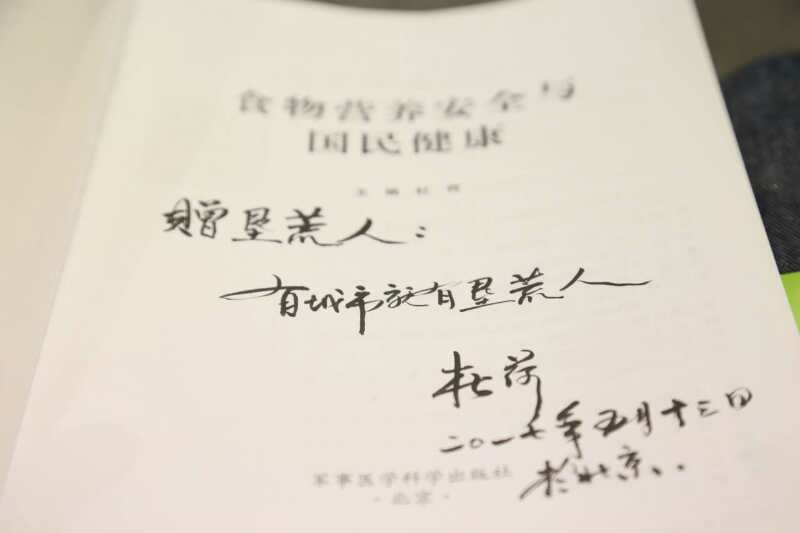 食物营养安全与
国民健康
主编 杜荷
赠垦荒人：
有城市就有垦荒人
杜荷
二〇一七年五月十三日
于北京..
军事医学科学出版社
·北京·